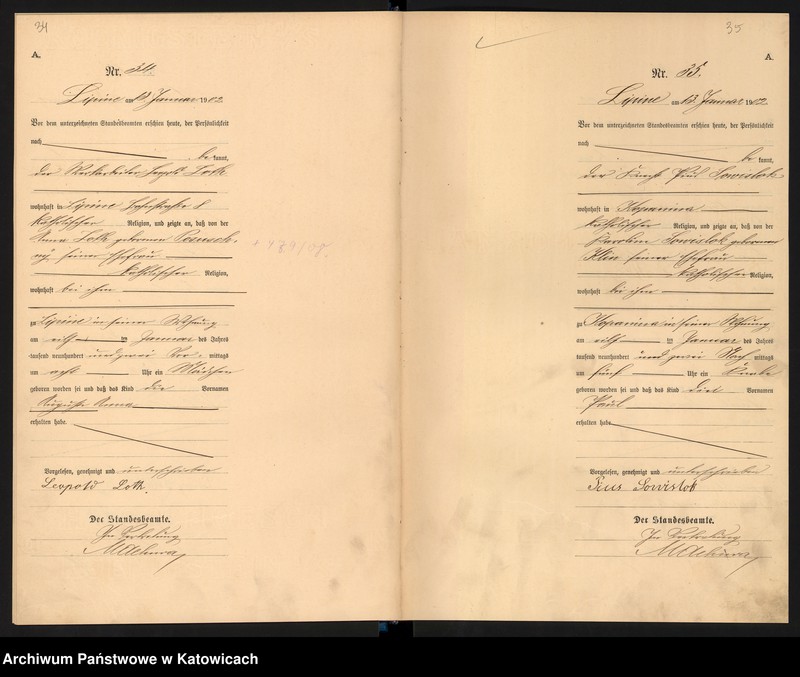 34
A.
Nr. 34.
Lipine am 13. Januar 1902.
Vor dem unterzeichneten Standesbeamten erschien heute, der Persönlichkeit
nach
be kannt,
der Leopold Loth
wohnhaft in Lipine 8
katholischer Religion, und zeigte an, daß von der
Anna Loth geborenen
seiner Ehefrau
katholischer Religion,
wohnhaft bei ihm
zu Lipine in seiner Wohnung
am elf ten Januar des Jahres
tausend neunhundert und zwei Vor- mittags
um acht Uhr ein Mädchen
geboren worden sei und daß das Kind die Vornamen
Auguste Anna
erhalten habe.
Vorgelesen, genehmigt und unterschrieben
Leopold Loth.
Der Standesbeamte.
In Vertretung
35
A.
Nr. 35.
Lipine am 13. Januar 1902.
Vor dem unterzeichneten Standesbeamten erschien heute, der Persönlichkeit
nach
be kannt,
der Paul Sowislok
wohnhaft in Kopanina
katholischer Religion, und zeigte an, daß von der
Karoline Sowislok geborenen
Klin seiner Ehefrau
katholischer Religion,
wohnhaft bei ihm
zu Kopanina in seiner Wohnung
am elf ten Januar des Jahres
tausend neunhundert und zwei Nach mittags
um fünf Uhr ein Knabe
geboren worden sei und daß das Kind den Vornamen
Paul
erhalten habe
Vorgelesen, genehmigt und unterschrieben
Sowislok
Der Standesbeamte.
In Vertretung
Archiwum Państwowe w Katowicach